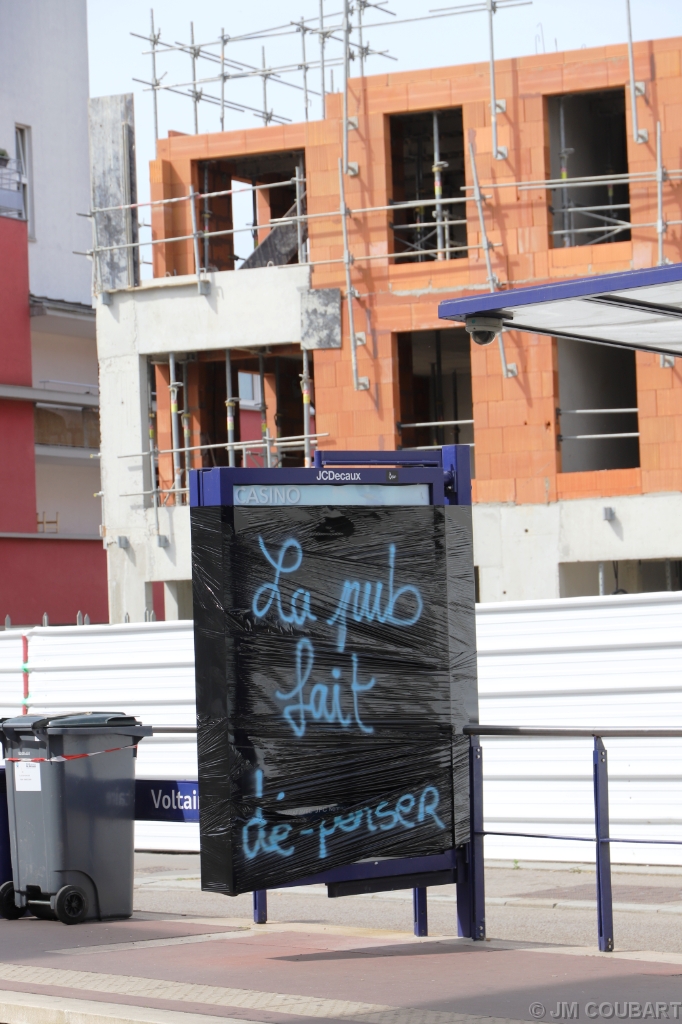 JCDecaux
CASINO
La pub
fait
dé-penser
Voltai
© JM COUBART